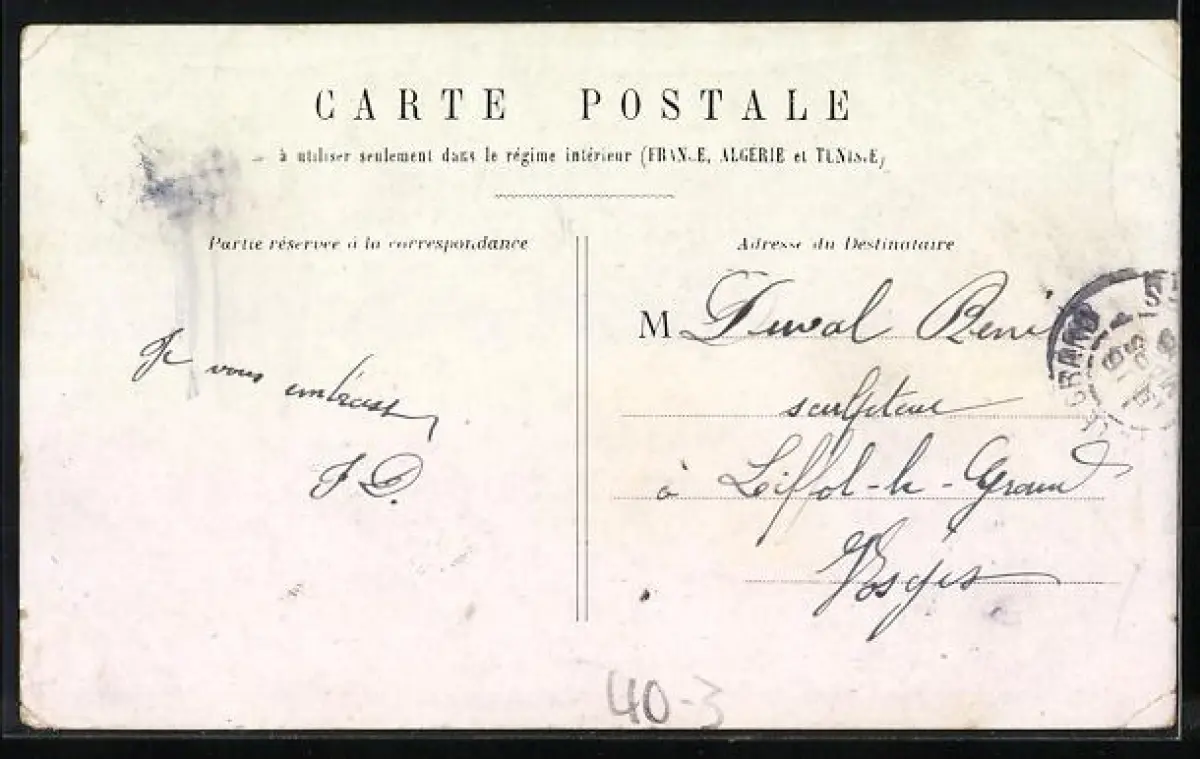 CARTE POSTALE
à utiliser seulement dans le régime intérieur (FRANCE, ALGÉRIE et TUNISIE)
Partie réservée à la correspondance
Adresse du Destinataire
Je vous embrasse
J D.
M Duval René
sculpteur
à Liffol-le-Grand
Vosges
GRAND
40-3